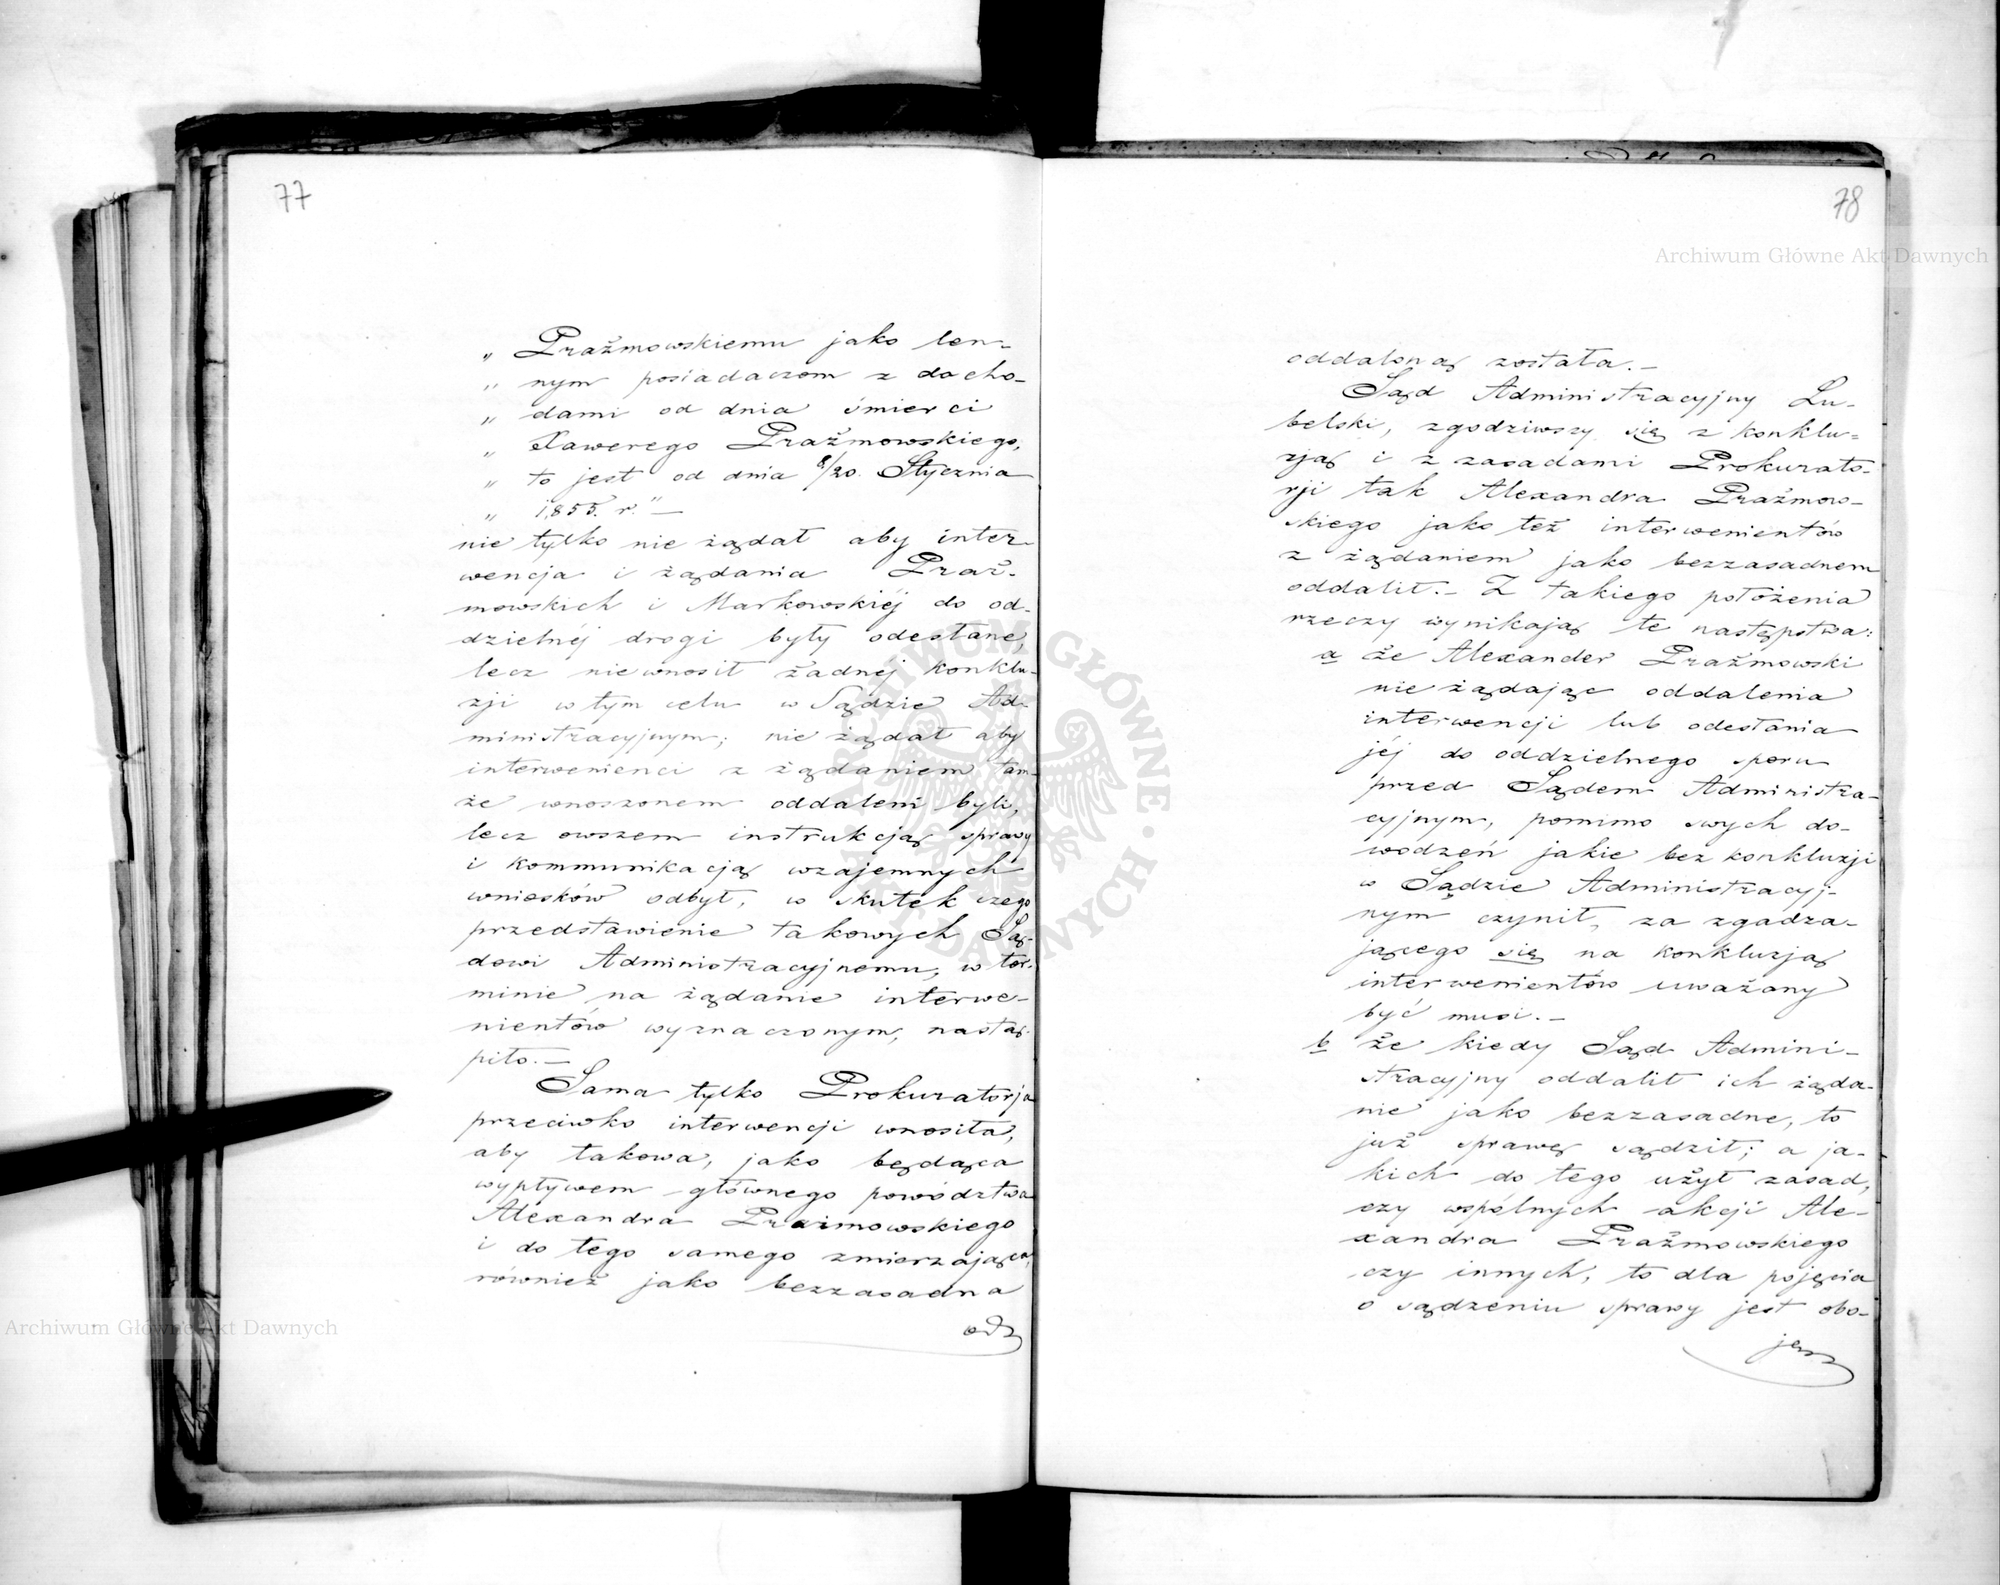 77
„ Prażmowskiemu jako len-
„ nym posiadaczom z docho-
„ dami od dnia śmierci
„ Xawerego Prażmowskiego,
„ to jest od dnia 8/20. Stycznia
„ 1855. r." —
nie tylko nie żądał aby inter-
wencja i żądania Praż-
mowskich i Markowskiéj do od-
dzielnéj drogi były odesłane,
lecz niewnosił żadnéj konklu-
zji w tym celu w Sądzie Ad-
ministracyjnym; nie żądał aby
interwenienci z żądaniem tam-
że wnoszonem oddaleni byli,
lecz owszem instrukcją sprawy
i kommunikacją wzajemnych
wniosków odbył, w skutek czego
przedstawienie takowych Są-
dowi Administracyjnemu, w ter-
minie na żądanie interwe-
nientów wyznaczonym, nastą-
piło. —
Sama tylko Prokuratorja
przeciwko interwencji wnosiła,
aby takowa, jako będąca
wypływem głównego powództwa
Alexandra Prażmowskiego
i do tego samego zmierzająca,
również jako bezzasadna
od
78
oddaloną została. —
Sąd Administracyjny Lu-
belski, zgodziwszy się z konklu-
zją i z zasadami Prokurato-
rji tak Alexandra Prażmow-
skiego jako też interwenientów
z żądaniem jako bezzasadnem
oddalił. — Z takiego położenia
rzeczy wynikają te następstwa:
a że Alexander Prażmowski
nie żądając oddalenia
interwencji lub odesłania
jéj do oddzielnego sporu
przed Sądem Administra-
cyjnym, pomimo swych do-
wodzeń jakie bez konkluzji
w Sądzie Administracyj-
nym czynił, za zgadza-
jącego się na konkluzją
interwenientów uważany
być musi. —
b że kiedy Sąd Admini-
stracyjny oddalił ich żąda-
nie jako bezzasadne, to
już sprawę sądził; a ja-
kich do tego użył zasad,
czy wspólnych akcji Ale-
xandra Prażmowskiego
czy innych, to dla pojęcia
o sądzeniu sprawy jest obo-
Archiwum Główne Akt Dawnych
Archiwum Główne Akt Dawnych
ARCHIWUM GŁÓWNE AKT DAWNYCH